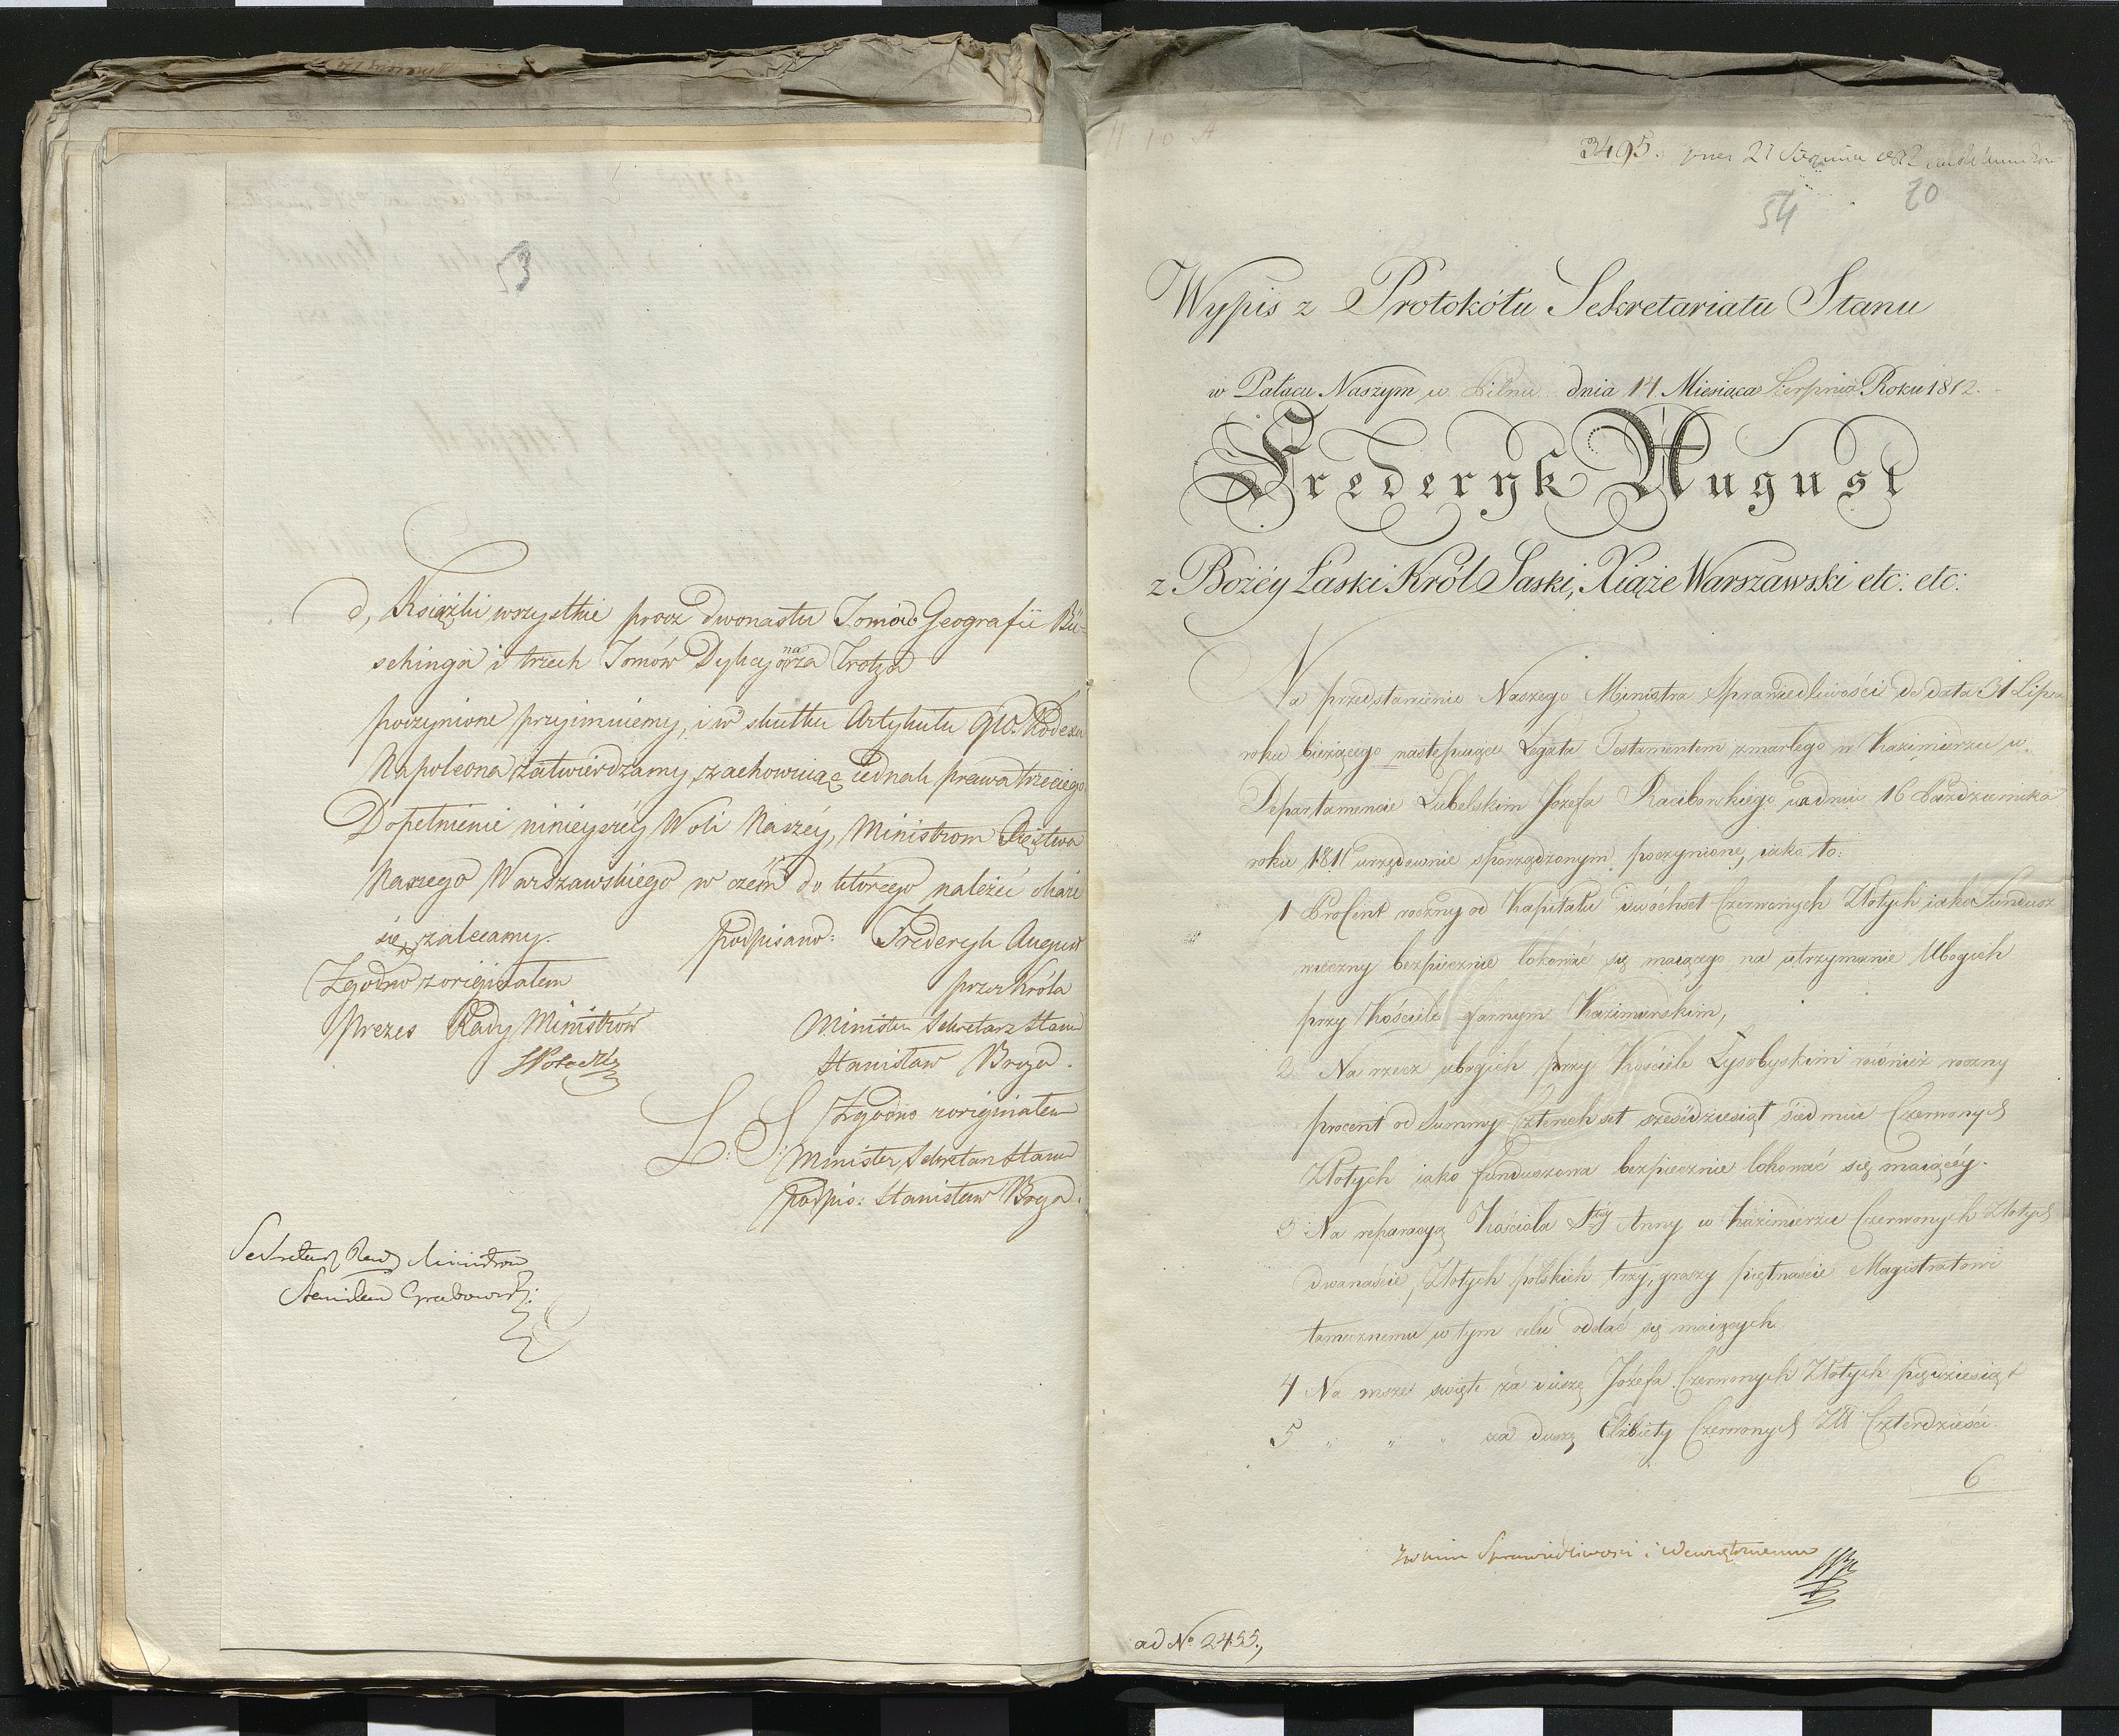 53
d, Książki wszystkie procz dwonastu Tomów Geografii Bü=
schinga i trzech Tomów Dykcyonarza Trotza
poczynione przyimuiemy, i w skutku Artykułu 910. Kodexu
Napoleona zatwierdzamy, zachowuiąc iednak prawa trzeciego
Dopełnienie ninieyszéy Woli Naszéy, Ministrom Xięstwa
Naszego Warszawskiego w czém do którego należeć okaże
się, zalecamy.
podpisano: Frederyk August
Zgodno z originałem
przez Króla
Prezes Rady Ministrów
Minister Sekretarz Stanu
SPotocki
Stanisław Breza.
L. S. Zgodno z originałem
Minister Sekretarz Stanu
podpis: Stanisław Breza.
Sekretarz Rady Ministrow
Stanisław Grabowski
3495. 27 Sierpnia 1812
54 20
Wypis z Protokółu Sekretariatu Stanu
w Pałacu Naszym w Pilnu dnia 14 Miesiąca Sierpnia Roku 1812.
Frederyk August
z Bożéy Łaski Król Saski, Xiąże Warszawski etc: etc:
Na przedstawienie Naszego Ministra Sprawiedliwości de dato 31 Lipca
roku bieżącego następuiące Legata Testamentem zmarłego w Kazimierzu w
Departamencie Lubelskim Józefa Raciborskiego na dniu 16 Października
roku 1811 urzędownie sporządzonym poczynione, iako to:
1 Procent roczny od Kapitału dwóchset Czerwonych Złotych iako Fundusz
wieczny bezpiecznie lokować się maiącego na utrzymanie Ubogich
przy Kościele farnym Kazimirskim,
2 Na rzecz ubogich przy Kościele Łysobyskim również roczny
procent od Summy Czterechset sześćdziesiąt siedmiu Czerwonych
Złotych iako funduszowa bezpiecznie lokować się maiącéy.
3 Na reparacyą Kościoła Stéy Anny w Kazimierzu Czerwonych Złotych
dwanaście, Złotych polskich trzy, groszy piętnaście Magistratowi
tamecznemu w tym celu oddać się maiących.
4 Na msze święte za duszę Józefa Czerwonych Złotych pięćdziesiąt
5 " " " za duszę Elżbiety Czerwonych Złł Czterdzieści.
6
Sprawiedliwości i Wewnętrznemu
ad No. 2455.,